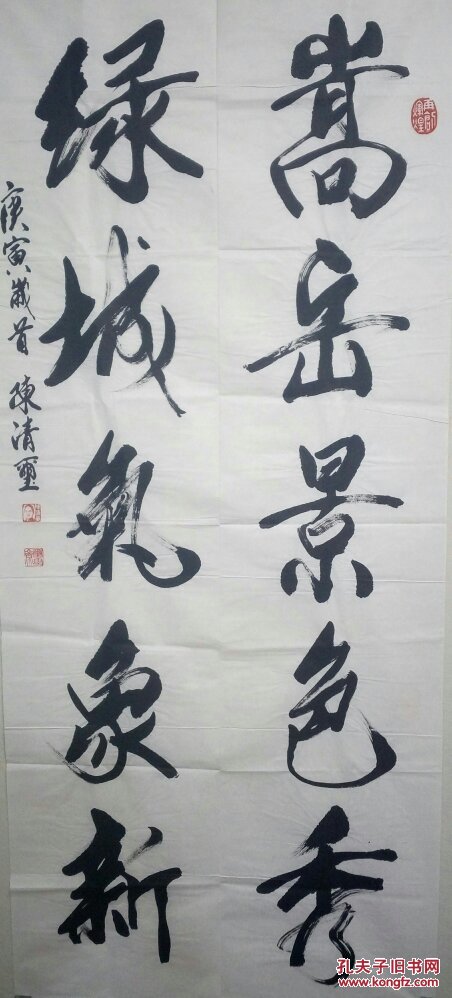 嵩岳景色秀
绿城氣象新
庚寅歲首 陳清璽
孔夫子旧书网
kongfz.com